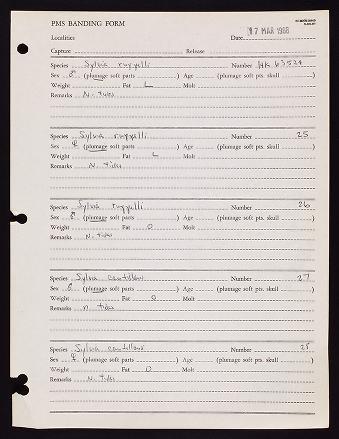 PMS BANDING FORM
Localities
Date 17 MAR 1966
Capture Release
Species Sylvia ruppelli Number HK 63524
Sex ♂ (plumage soft parts ) Age (plumage soft pts. skull )
Weight Fat L Molt
Remarks N. ticks
Species Sylvia ruppelli Number 25
Sex ♀ (plumage soft parts ) Age (plumage soft pts. skull )
Weight Fat L Molt
Remarks N. ticks
Species Sylvia ruppelli Number 26
Sex ♂ (plumage soft parts ) Age (plumage soft pts. skull )
Weight Fat O Molt
Remarks N. ticks
Species Sylvia cantillans Number 27
Sex ♂ (plumage soft parts ) Age (plumage soft pts. skull )
Weight Fat O Molt
Remarks n ticks
Species Sylvia cantillans Number 28
Sex ♀ (plumage soft parts ) Age (plumage soft pts. skull )
Weight Fat O Molt
Remarks N. ticks